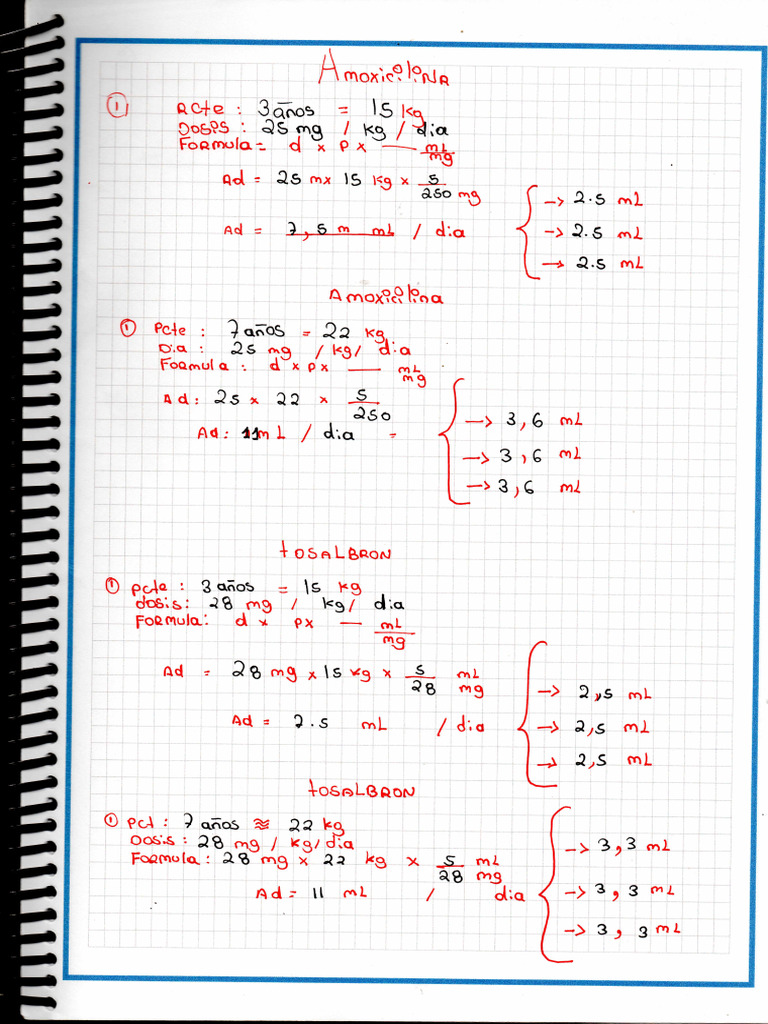 Amoxicilina
① Pcte : 3 años = 15 kg
Dosis : 25 mg / kg / dia
Formula = d x P x — mL/mg
Ad = 25 mx 15 kg x 5/250 mg
Ad = 7,5 m mL / dia { → 2.5 mL
→ 2.5 mL
→ 2.5 mL
Amoxicilina
① Pcte : 7 años = 22 kg
Dia : 25 mg / kg / dia
Formula : d x Px — mL/mg
Ad : 25 x 22 x 5/250
Ad : 11 mL / dia = { → 3,6 mL
→ 3,6 mL
→ 3,6 mL
tosALBRON
① pcte : 3 años = 15 kg
dosis : 28 mg / kg/ dia
Formula : d x Px — mL/mg
Ad = 28 mg x 15 kg x 5/28 mL/mg
Ad = 7.5 mL / dia { → 2,5 mL
→ 2,5 mL
→ 2,5 mL
tosALBRON
① pct : 7 años ≈ 22 kg
Dosis : 28 mg / kg/dia
Formula : 28 mg x 22 kg x 5/28 mL/mg
Ad = 11 mL / dia { → 3,3 mL
→ 3,3 mL
→ 3,3 mL